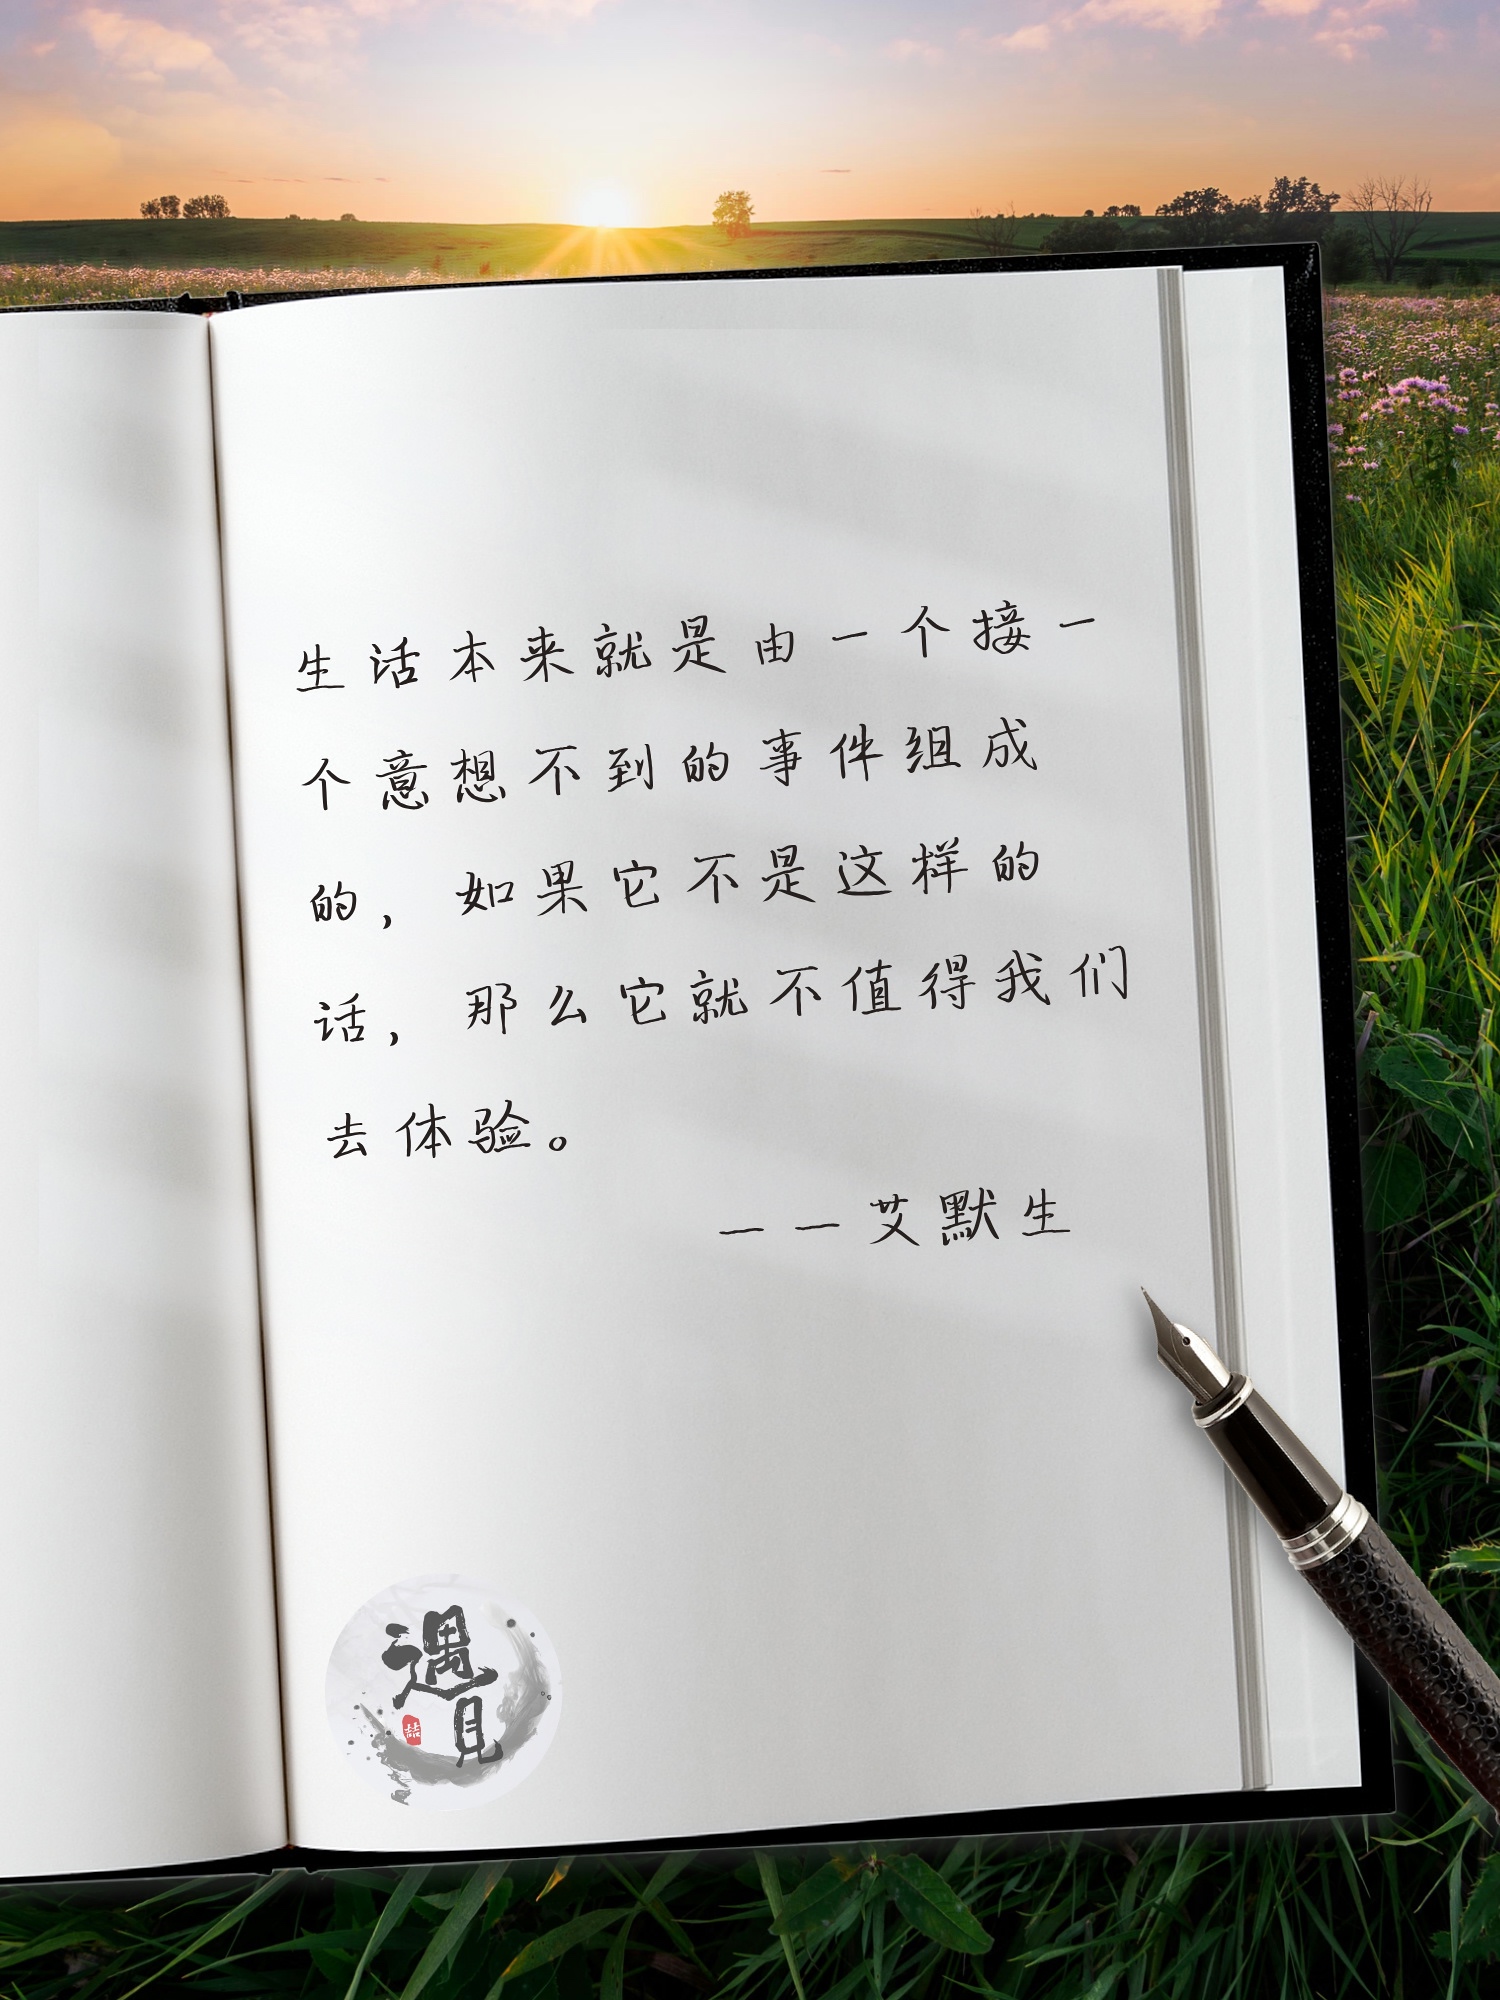 生活本来就是由一个接一
个意想不到的事件组成
的，如果它不是这样的
话，那么它就不值得我们
去体验。
——艾默生
遇
见
喆